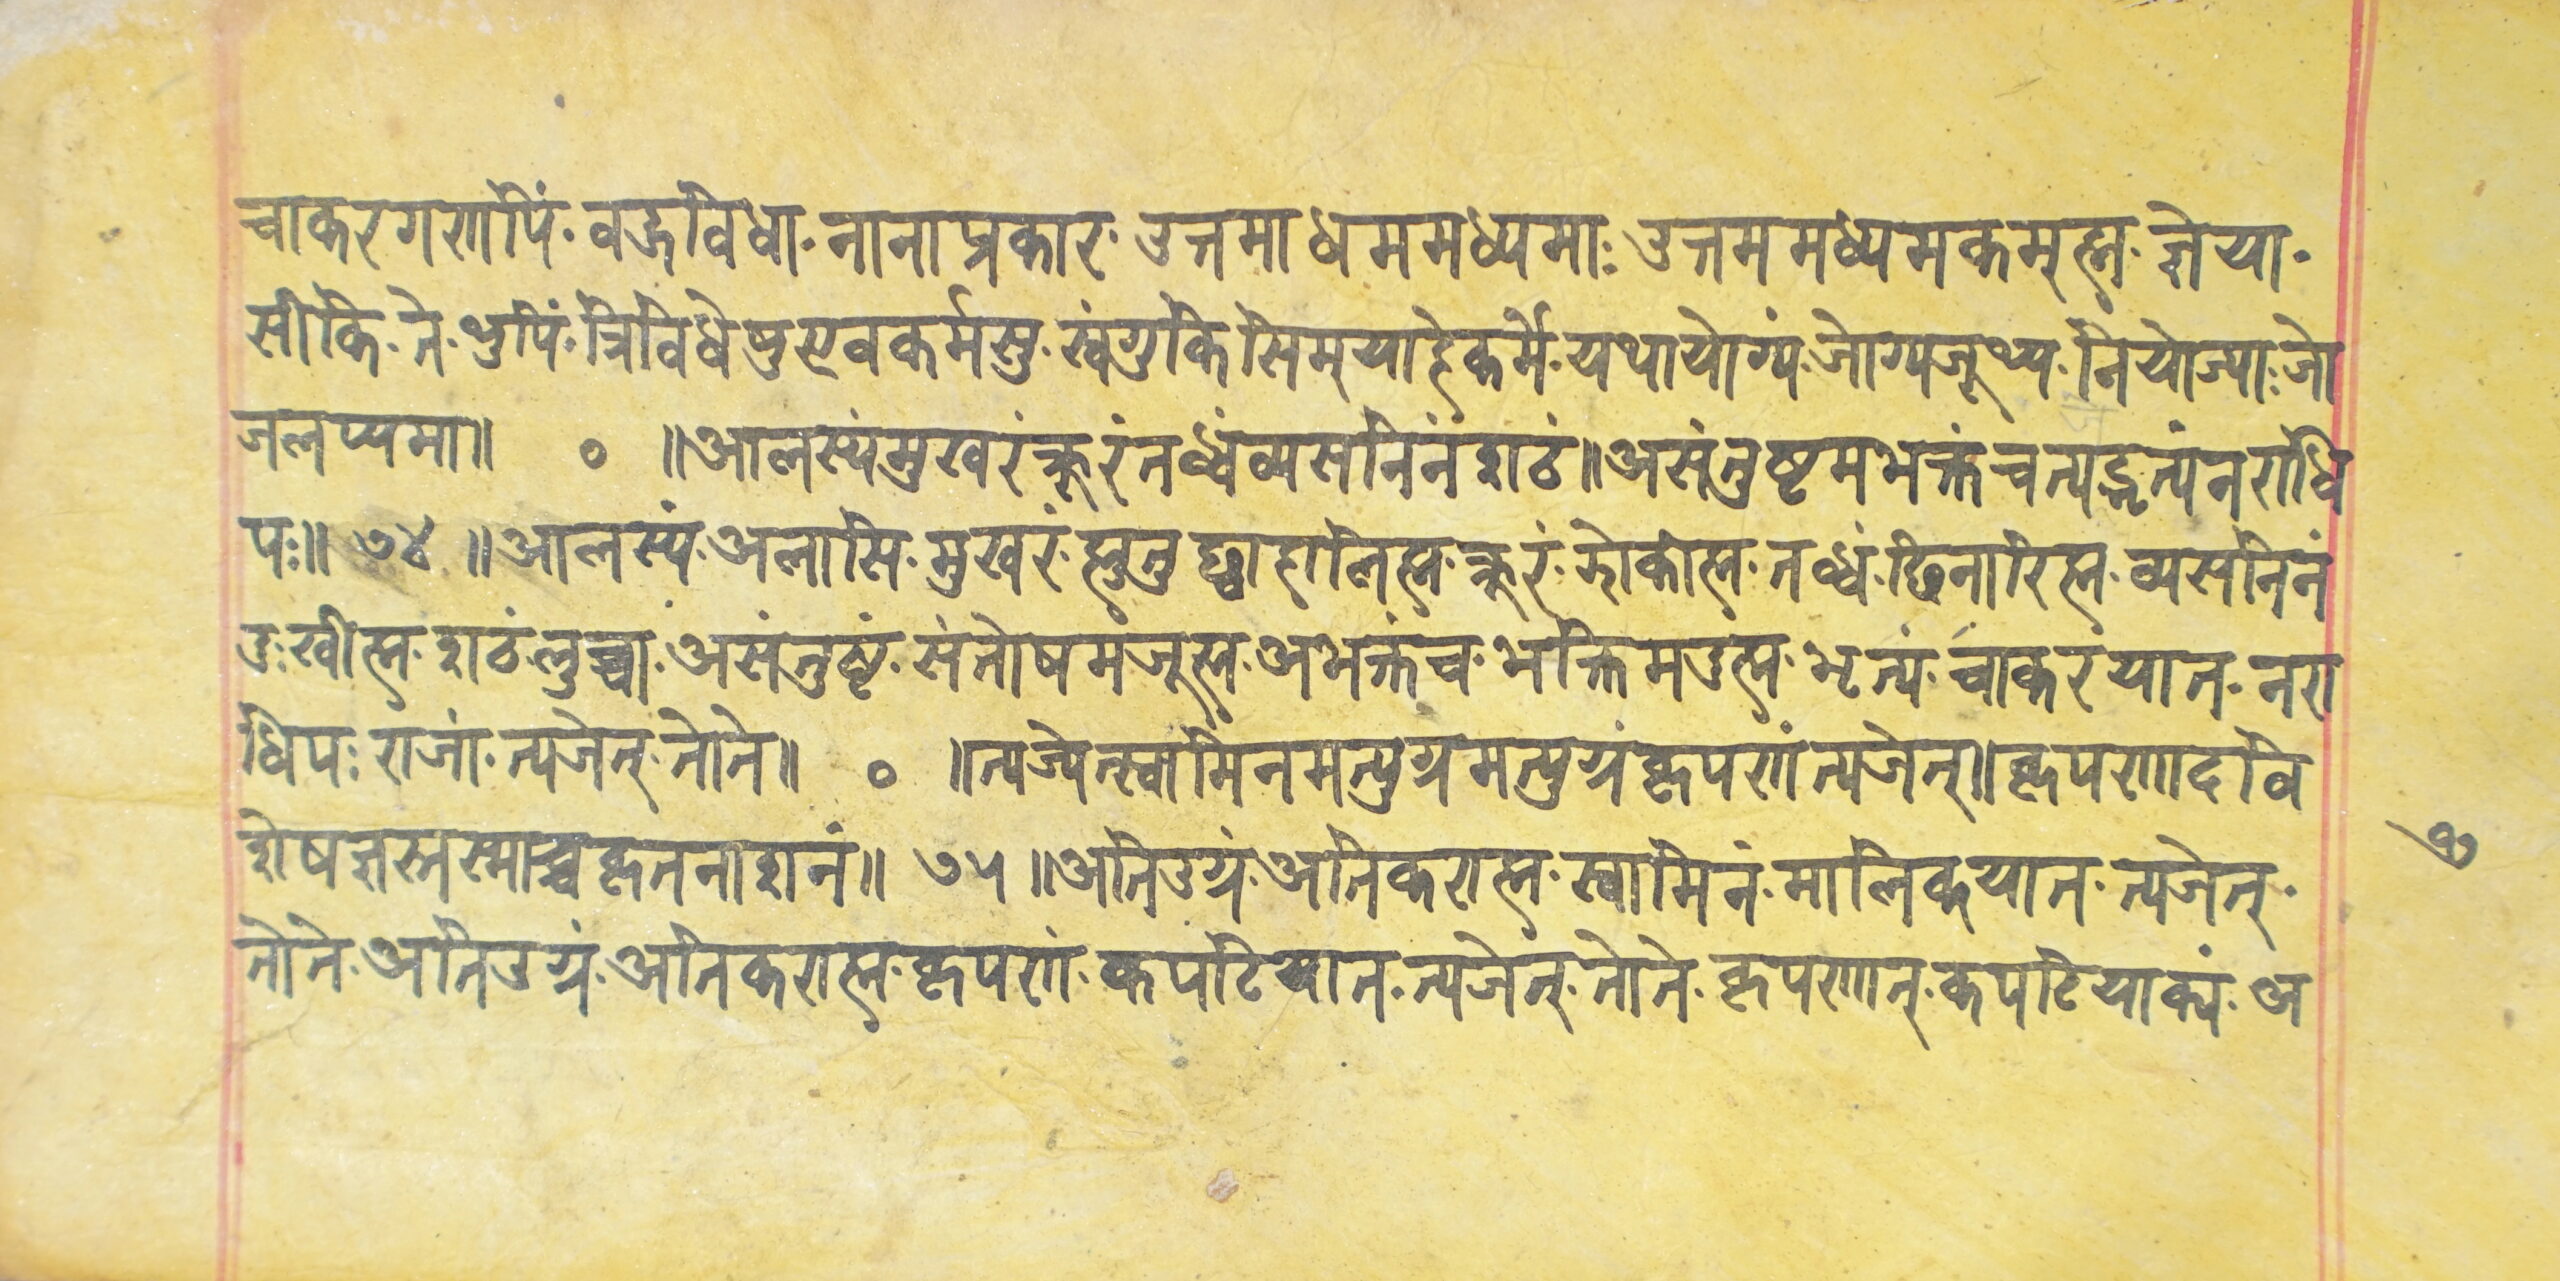 चाकरगणपिं· वहुविधा· नानाप्रकार· उत्तमाधममध्यमाः· उत्तममध्यमकमह्म· ज्ञेया·
सीकि· ते· थुपिं· त्रिविधेषुएवकर्मसु· स्वंगुकिसिमयाहेकर्मे· यथायोग्यं· जोग्यजूथ्य· नियोज्याः· जो
जलप्यमा॥ ० ॥आलस्यंमुखरंक्रूरंनब्धंव्यसनिनंशठं॥असंतुष्टमभक्तंचत्यद्भृत्यंनराधि
पः॥ ७४ ॥आलस्यं· अलासि· मुखरं· ह्मुतु· छ्वाहालिह्म· क्रूरं· झोकीह्म· तब्धं· छिनारिह्म· व्यसनिनं
दुःखीह्म· शठं· लुच्चा· असंतुष्टं· संतोषमजूह्म· अभक्तंच· भक्तिमउह्म· भृत्यं· चाकरयात· नरा
धिपः· राजां· त्यजेत्· तोते॥ ० ॥त्यज्येत्स्वामिनमत्युग्रमत्युग्रंकृपणंत्यजेत्॥कृपणादवि
शेषज्ञस्तस्माच्चकृतनाशनं॥ ७५ ॥अतिउग्रं· अतिकराह्म· स्वामिनं· मालिकयात· त्यजेत्·
तोते· अतिउग्रं· अतिकराह्म· कृपणं· कपटियात· त्यजेत्· तोते· कृपणात्· कपटियाक्यं· अ
७